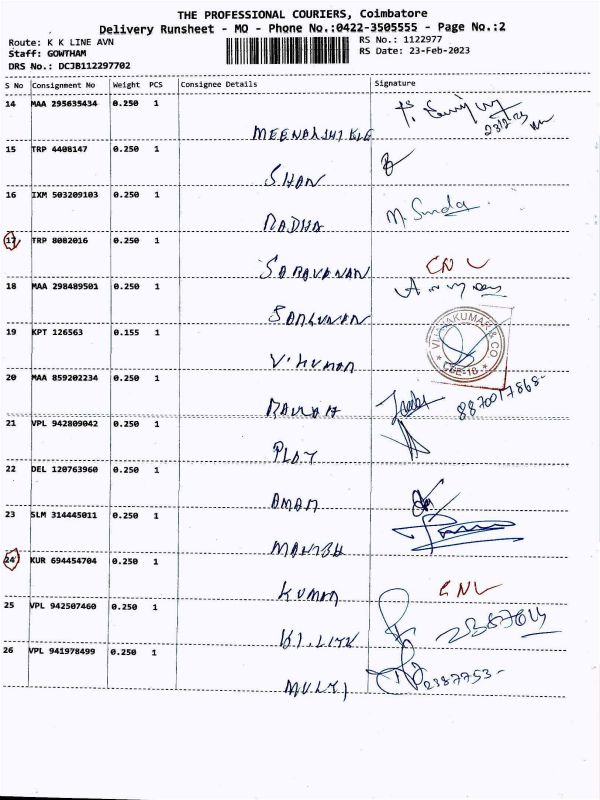 THE PROFESSIONAL COURIERS, Coimbatore
Delivery Runsheet - MO - Phone No.:0422-3505555 - Page No.:2
Route: K K LINE AVN RS No.: 1122977
Staff: GOWTHAM RS Date: 23-Feb-2023
DRS No.: DCJB112297702
S No Consignment No Weight PCS Consignee Details Signature
14 MAA 295635434 0.250 1
23/2/23
15 TRP 4408147 0.250 1
SHAN
16 IXM 503209103 0.250 1
RADHA
17 TRP 8082016 0.250 1
SARAVANAN CNL
18 MAA 298489501 0.250 1
19 KPT 126563 0.155 1
VIJAYAKUMAR & CO
CBE-18
20 MAA 859202234 0.250 1
21 VPL 942809042 0.250 1
PLAY
22 DEL 120763960 0.250 1
AMAN
23 SLM 314445011 0.250 1
24 KUR 694454704 0.250 1
KUMAR CNL
25 VPL 942507460 0.250 1
26 VPL 941978499 0.250 1
2387753-